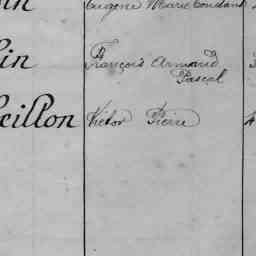 Eugène Marie Constant
in François Armand
Pascal
eillon Victor Pierre